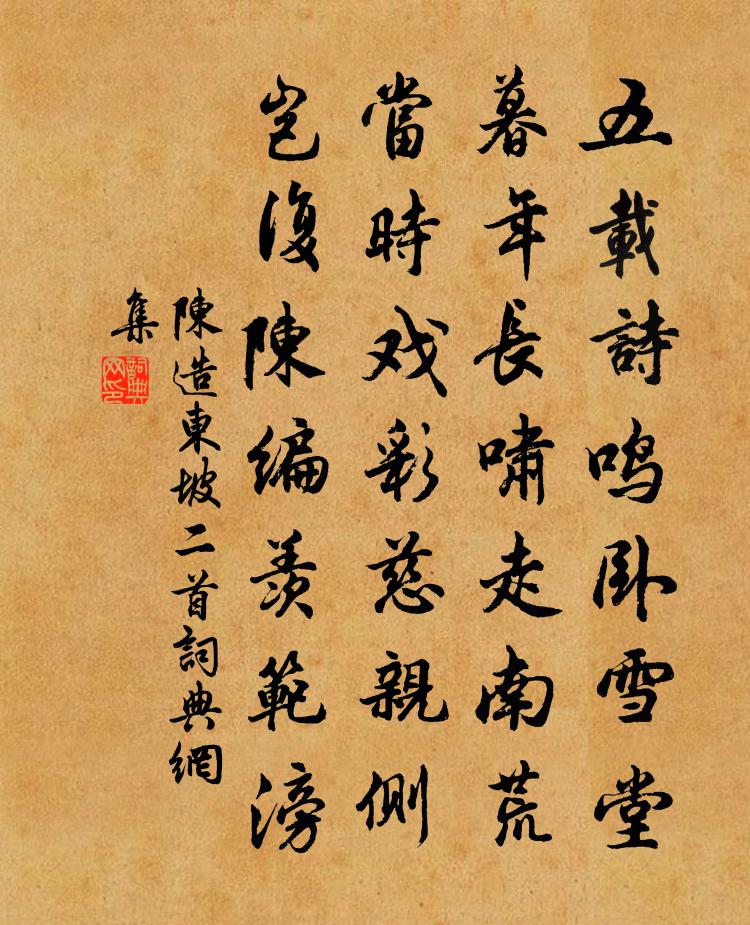 五載詩鳴卧雪堂
暮年長嘯走南荒
當時戏彩慈親側
岂復陳編羨範滂
陳造東坡二首詞典網
集
詞典网印